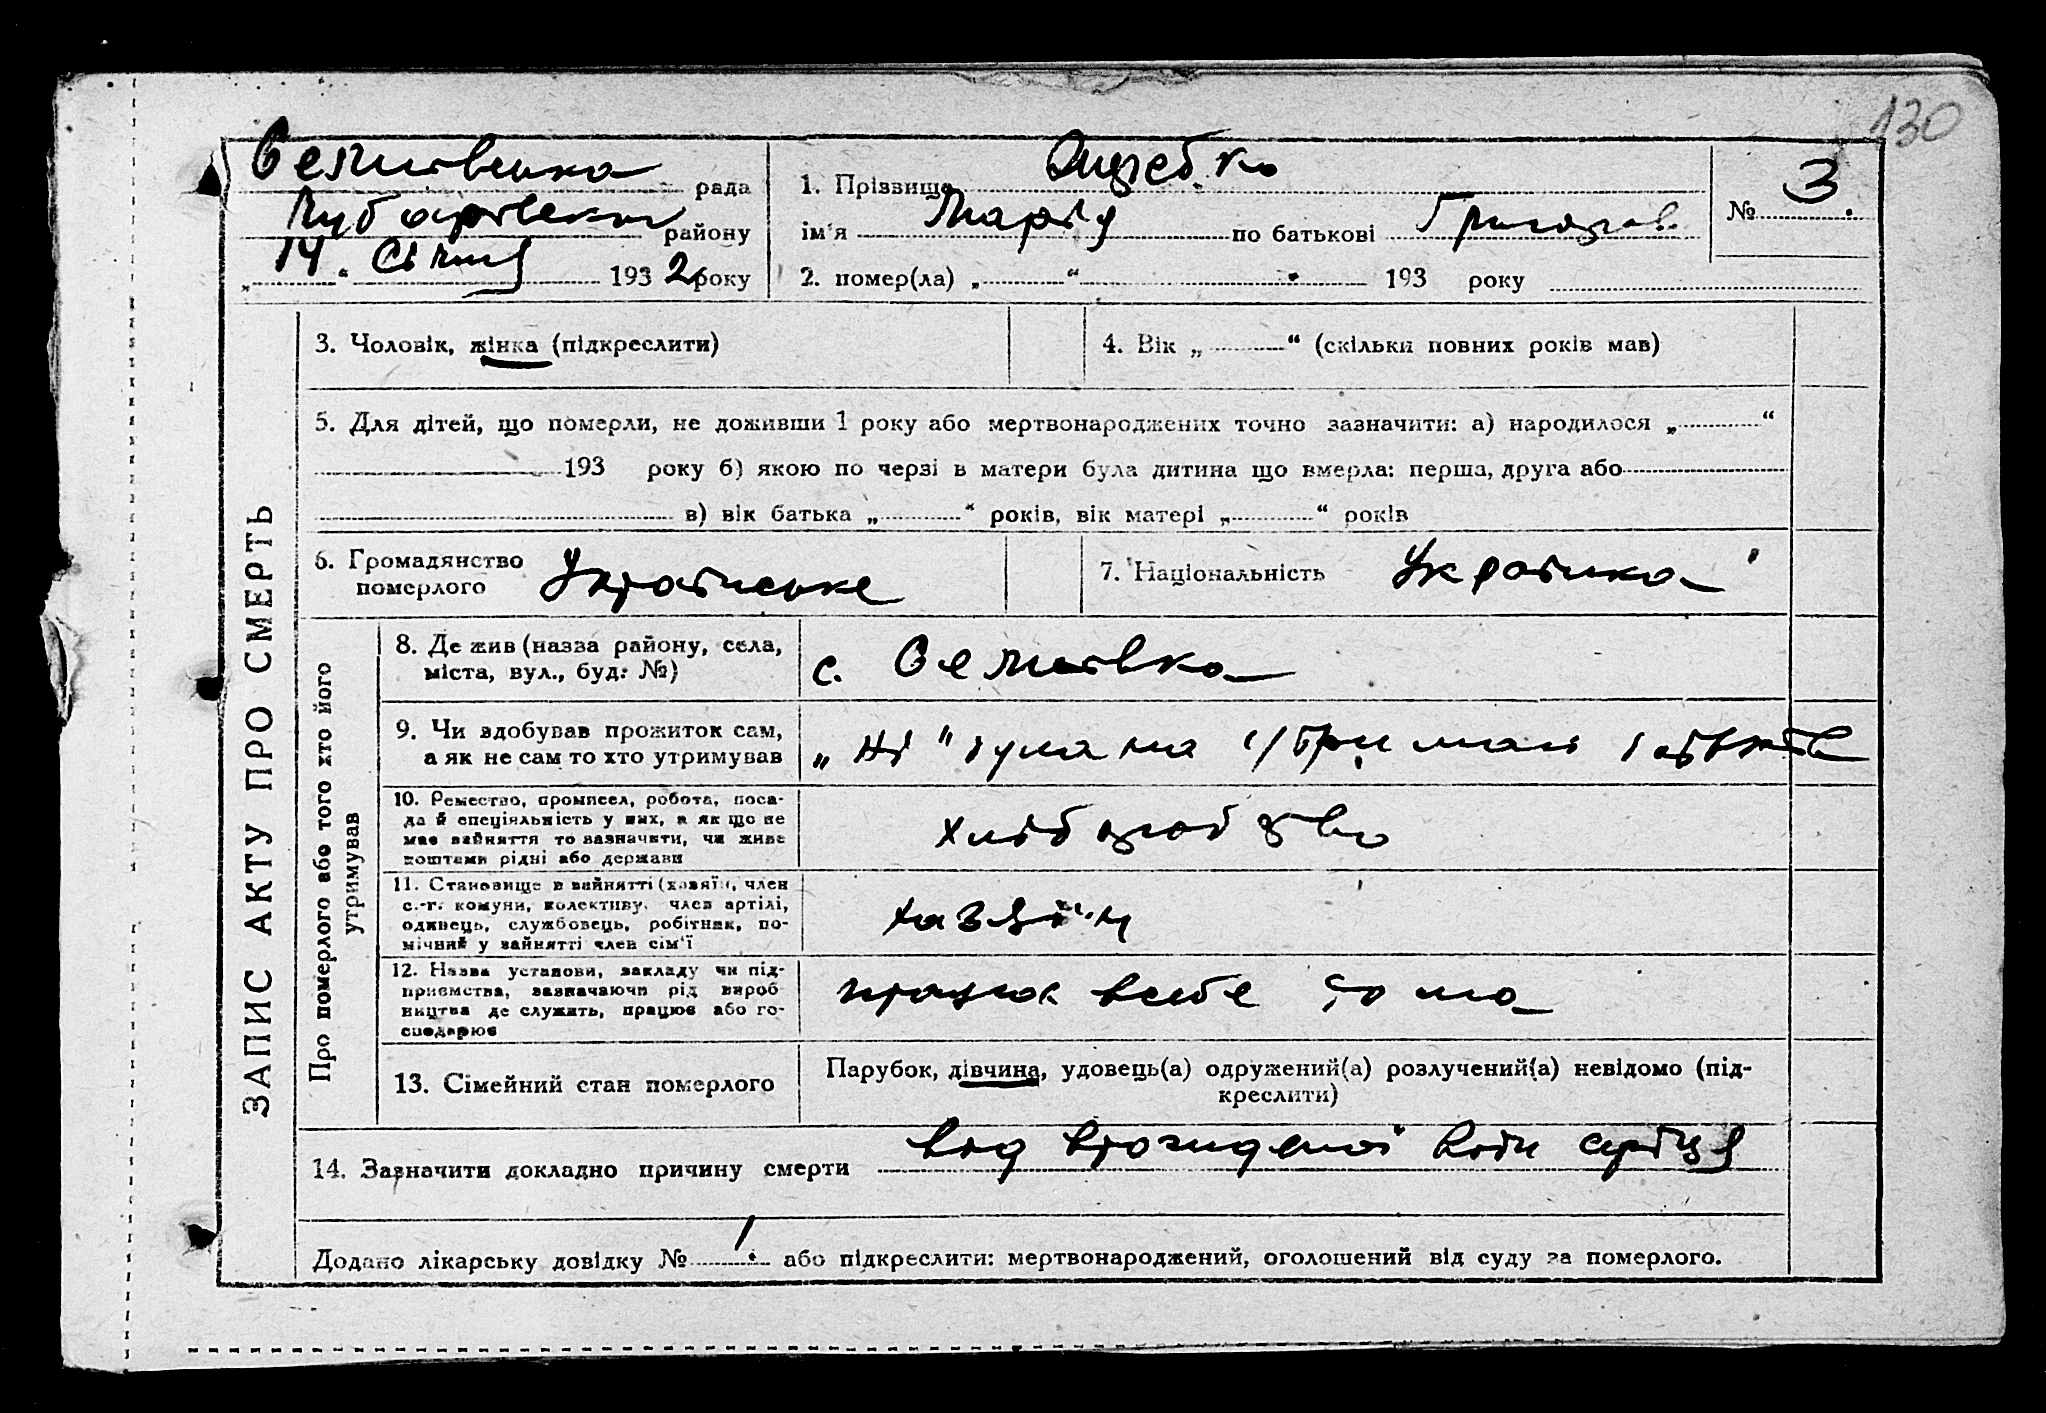 130
Семенівська рада
Чубарівського району
„14“ Січня 1932 року
1. Прізвище
№ 3.
ім'я Марія по батькові Григоров.
2. помер(ла) „ “ 193 року
ЗАПИС АКТУ ПРО СМЕРТЬ
3. Чоловік, жінка (підкреслити)
4. Вік „ “ (скільки повних років мав)
5. Для дітей, що померли, не доживши 1 року або мертвонароджених точно зазначити: а) народилося „ “
193 року б) якою по черзі в матери була дитина що вмерла: перша, друга або
в) вік батька „ “ років, вік матері „ “ років
6. Громадянство
померлого Українське
7. Національність Українка
Про померлого або того хто його
утримував
8. Де жив (назва району, села,
міста, вул., буд. №)
с.
9. Чи здобував прожиток сам,
а як не сам то хто утримував
„ні“
10. Ремество, промисел, робота, поса-
да й спеціяльність у них, а як що не
має зайняття то зазначити, чи живе
коштами рідні або держави
хліборобство
11. Становище в зайнятті (хазяїн, член
с.-г. комуни, колективу, член артілі,
одинець, службовець, робітник, по-
мічний у зайнятті член сім'ї
хазяїн
12. Назва установи, закладу чи під-
приємства, зазначаючи рід вироб-
ництва де служить, працює або го-
сподарює
працює в себе дома
13. Сімейний стан померлого
Парубок, дівчина, удовець(а) одружений(а) розлучений(а) невідомо (під-
креслити)
14. Зазначити докладно причину смерти від серця
Додано лікарську довідку № 1 або підкреслити: мертвонароджений, оголошений від суду за померлого.